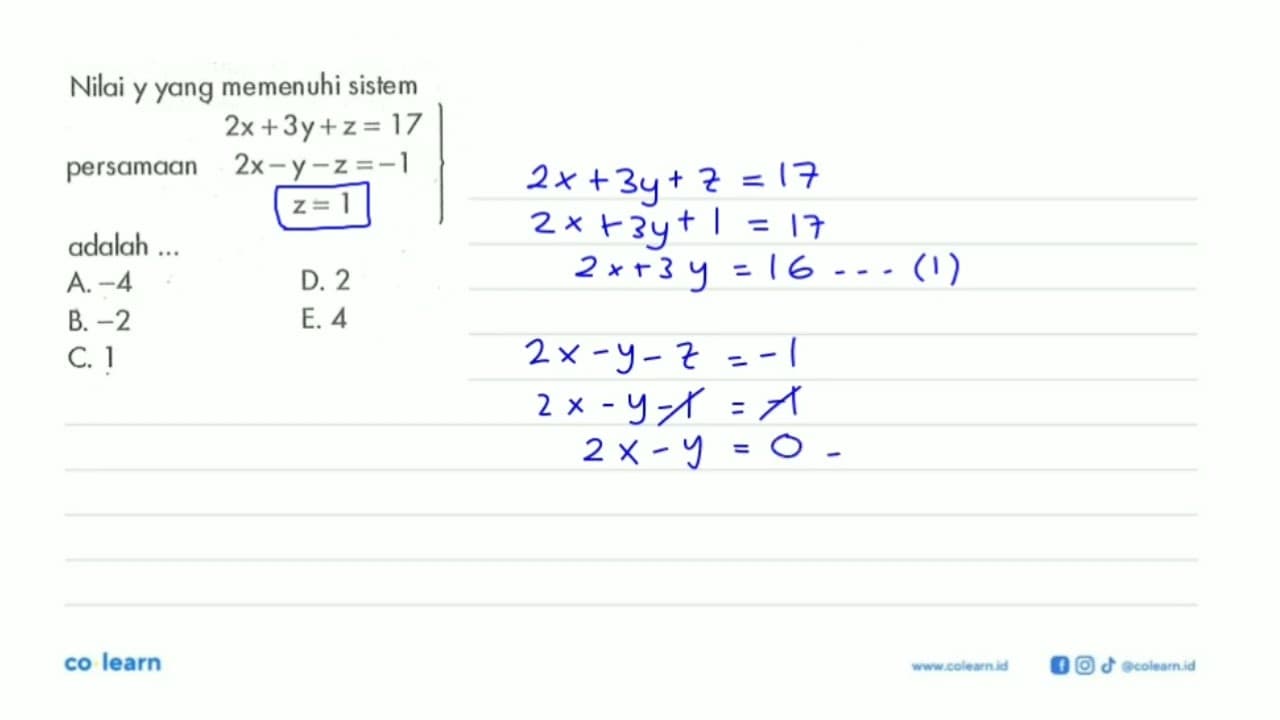 Nilai y yang memenuhi sistem
2x + 3y + z = 17
persamaan 2x − y − z = −1
z = 1
adalah ...
A. −4
D. 2
B. −2
E. 4
C. 1
2x + 3y + z = 17
2x + 3y + 1 = 17
2x + 3y = 16 --- (1)
2x - y - z = -1
2x - y - 1 = -1
2x - y = 0 -
co learn
www.colearn.id
@colearn.id